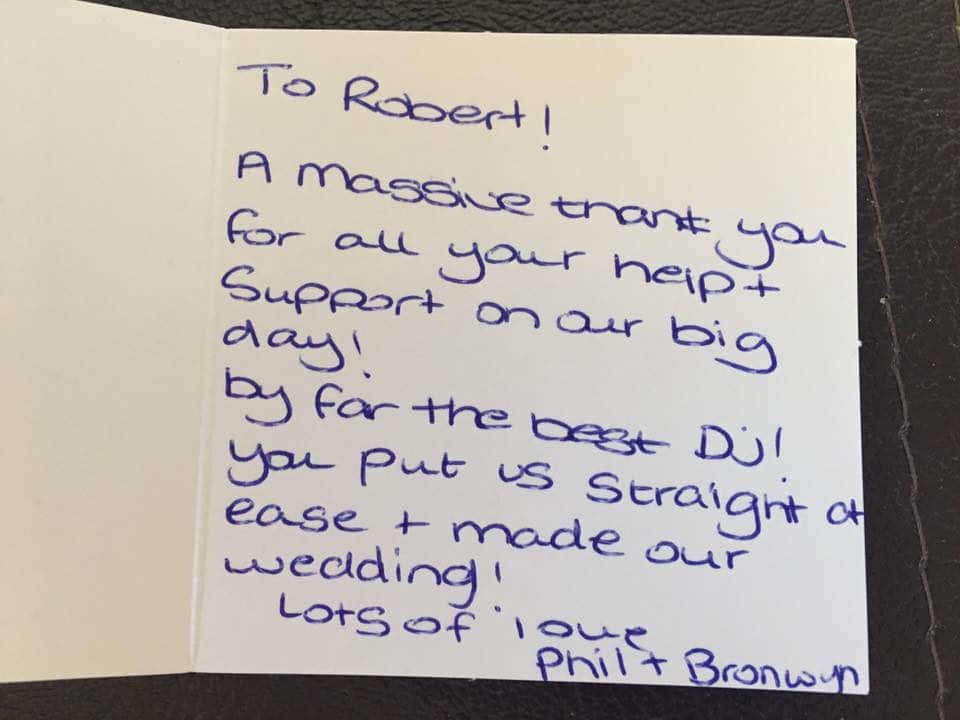 To Robert!
A massive thank you
for all your help +
Support on our big
day!
by far the best DJ!
you put us straight at
ease + made our
wedding!
Lots of love
Phil + Bronwyn